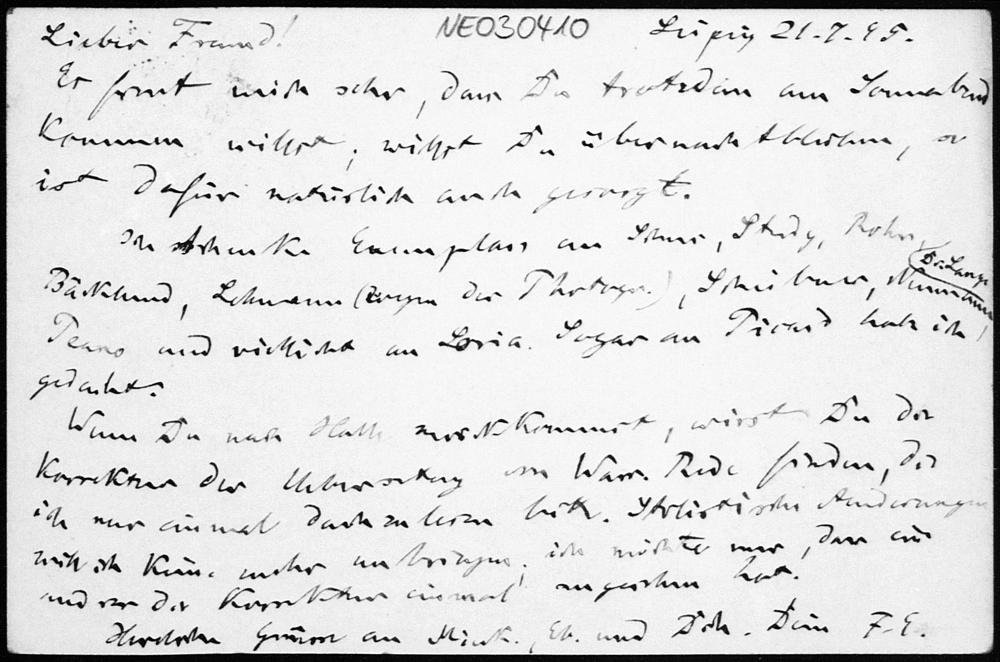 NE030410
Lieber Freund! Leipzig 21.7.95.
Es freut mich sehr, dass Du trotzdem am Sonnabend
kommen willst; willst Du über Nacht bleiben, so
ist dafür natürlich auch gesorgt.
Ich schenke Exemplare an Scheff, Study, Rohn,
Dr. Lange
Bäcklund, Lehmann (wegen der Photogr.), Scheibner, Neumann,
Peano und vielleicht an Loria. Sogar an Picard habe ich
gedacht.
Wenn Du nach Halle zurückkommst, wirst Du die
Korrektur der Uebersetzung von Rede finden, die
ich nur einmal durchzulesen bitte. Stilistische Aenderungen
will ich keine mehr anbringen; ich möchte nur, dass ein
andrer die Korrektur einmal angesehen hat.
Herzliche Grüsse an und Dich. Dein F. E.